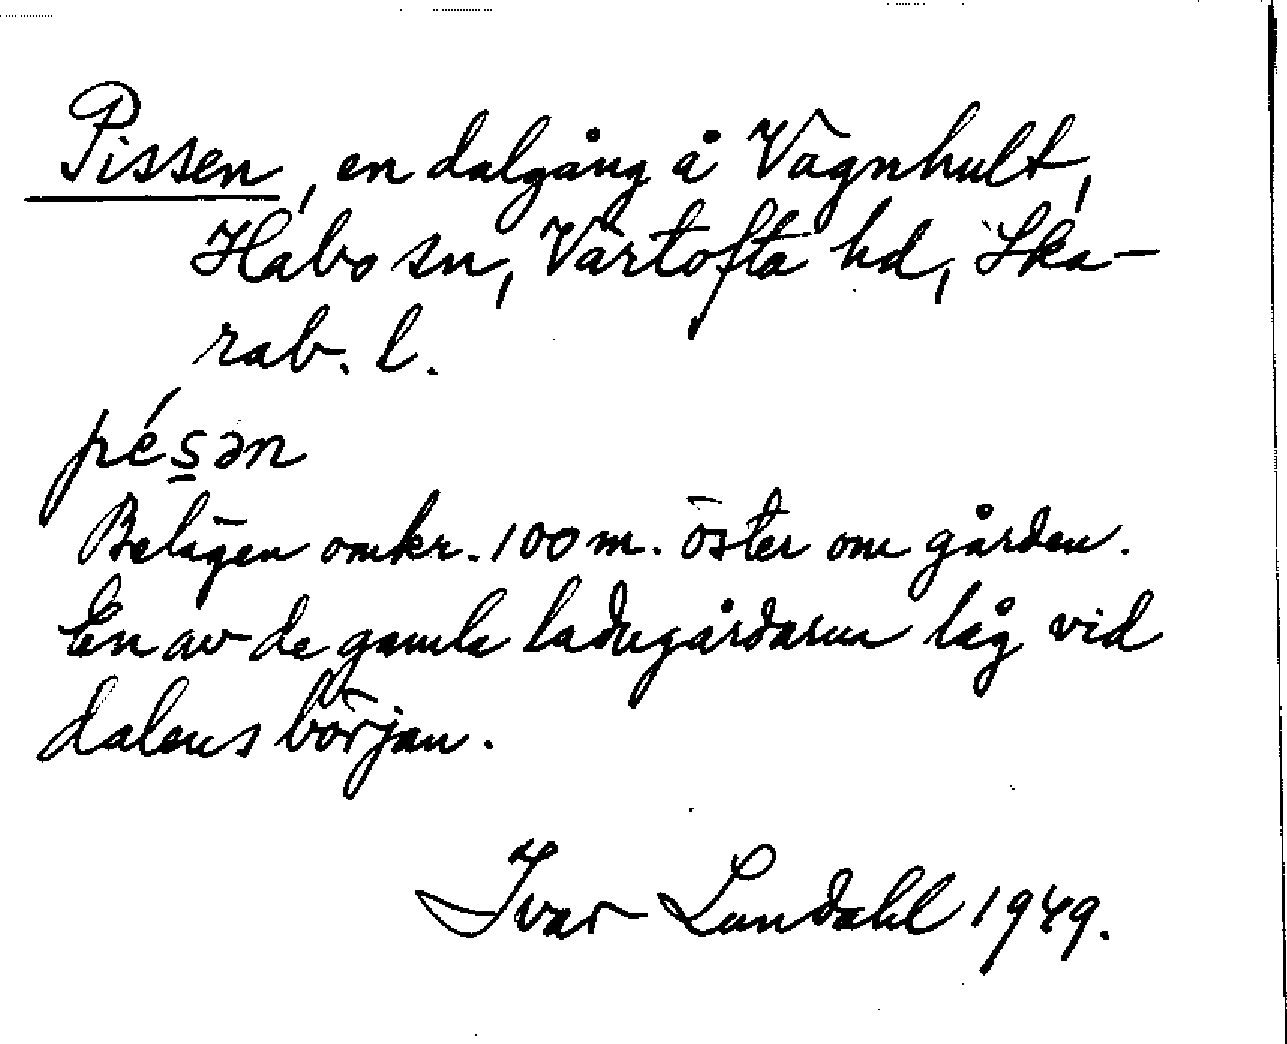 Pissen, en dalgång å Vägnhult,
Habo sn, Vartofta hd, Ska-
rab. l.
pe´s̲ən
Belägen omkr. 100 m. öster om gården.
En av de gamla ladugårdarna låg vid
dalens början.
Ivar Lundahl 1949.